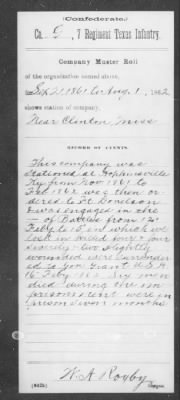 (Confederate.)
Co. G, 7 Regiment Texas Infantry.
Company Muster Roll
of the organization named above,
for Oct 2, 1861 to Aug 1, 1862
shows station of company,
Near Clinton, Miss
RECORD OF EVENTS.
This company was
stationed at Hopkinsville
Ky from Nov 1861 to
Feb 1862 was then or-
dered to Ft Donelson
& was engaged in the
of Battles from 12"
Feby to 15" in which we
lost in killed four & four
severely & two slightly
wounded were surrend-
ed to Gen Grant U.S.A.
16" Feby 1862. Six men
died during the im
prisonment were in
prison seven months
W. A. Roxby
Copyist.